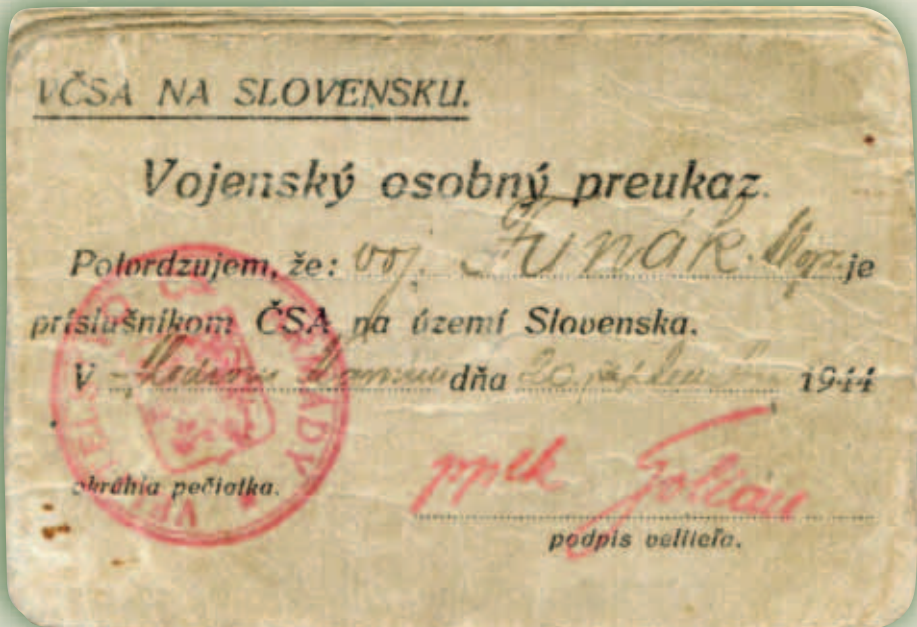 VČSA NA SLOVENSKU.
Vojenský osobný preukaz.
Potvrdzujem, že: voj. Funák je
príslušníkom ČSA na území Slovenska.
V dňa 20. 1944
okrúhla pečiatka.
pplk Golian
podpis veliteľa.